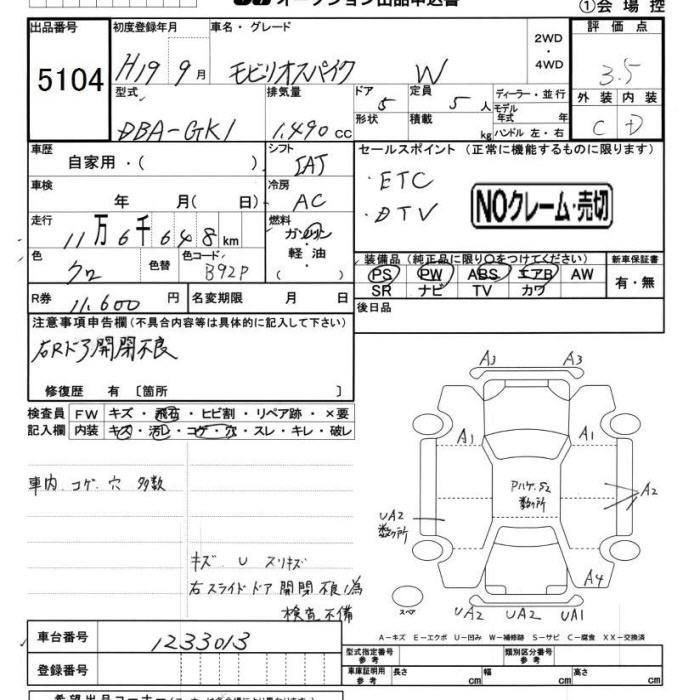 オークション出品申込書
①会場控
出品番号 5104
初度登録年月 H19 9月
車名・グレード モビリオスパイク W
2WD ・ 4WD
評価点 3.5
外装 C 内装 D
型式 DBA-GK1
排気量 1.490 cc
ドア 5
形状
定員 5人
積載 kg
ディーラー・並行
モデル年式 年
ハンドル 左・右
車歴 自家用・( )
シフト IAT
セールスポイント (正常に機能するものに限ります)
・ETC
・DTV
NOクレーム・売切
車検 年 月( 日)
冷房 AC
走行 11万6千648km
燃料 ガソリン
軽油
( )
色 クロ
色替
色コード B92P
装備品 (純正品に限り○をつけてください)
PS PW ABS エアB AW
SR ナビ TV カワ
新車保証書
有・無
R券 11,600円
名変期限 月 日
後日品
注意事項申告欄 (不具合内容等は具体的に記入して下さい)
右Rドア開閉不良
修復歴 有 〔箇所 〕
検査員記入欄
FW キズ・飛石・ヒビ割・リペア跡・×要
内装 キズ・汚レ・コゲ・穴・スレ・キレ・破レ
車内.コゲ.穴 多数
キズ U スリキズ
右スライドドア 開閉不良の為
検査不備
A3 A3
A1 A1
数ヶ所
A2
UA2
数ヶ所
A4
スペア
UA2 UA2 UA1
A−キズ E−エクボ U−凹み W−補修跡 S−サビ C−腐食 XX−交換済
車台番号 1233013
登録番号
型式指定番号 参考
類別区分番号 参考
車庫証明用 参考
長さ cm 幅 cm 高さ cm
希望出品コーナー